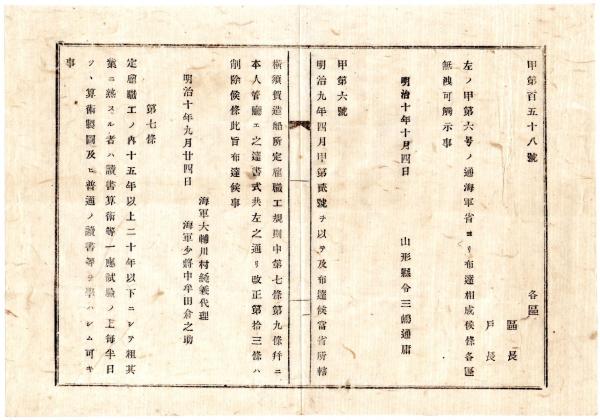 甲第百五十八號
各區
區長
戸長
左ノ甲第六号ノ通海軍省ヨリ布達相成候條各區
無洩可觸示事
明治十年十月四日
山形縣令三島通庸
甲第六號
明治九年四月甲第貳號ヲ以テ及布達候當省所轄
橫須賀造船所定雇職工規則中第七條第九條幷ニ
本人管廳エ之達書式共左之通リ改正第拾三條ハ
削除候條此旨布達候事
明治十年九月廿四日
海軍大輔川村純義代理
海軍少將中牟田倉之助
第七條
定雇職工ノ內十五年以上二十年以下ニシテ粗其
業ニ熟スル者ハ讀書算術等一應試驗ノ上每半日
ツヽ算術製圖及ヒ普通ノ讀書等ヲ學ハシム可キ
事